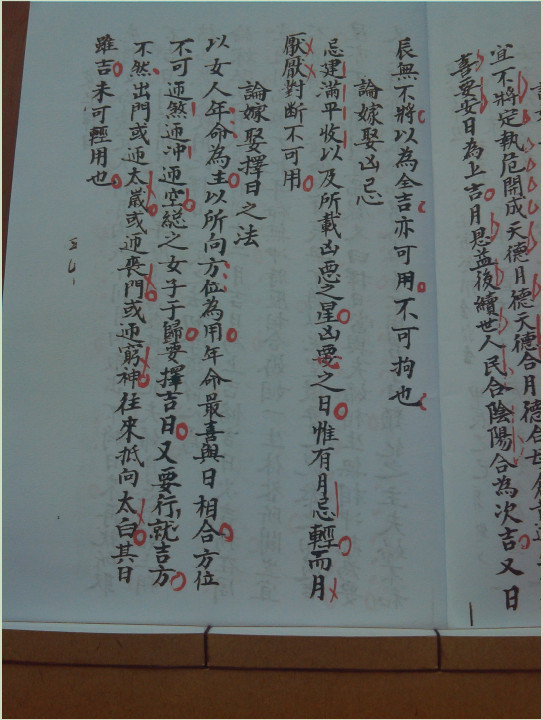 宜不將定執危開成天德月德天德合月德合
喜要安日為上吉月恩益後續世人民合陰陽合為次吉又日
辰無不將以為全吉亦可用不可拘也
論嫁娶凶忌
忌建滿平收以及所載凶惡之星凶要之日惟有月忌輕而月
厭厭對断不可用
論嫁娶擇日之法
以女人年命為主以所向方位為用年命最喜與日相合方位
不可逥然逥冲逥空総之女子于歸要擇吉日又要行就吉方
不然出門或逥太歲或逥喪門或逥窮神往來抵向太白其日
雖吉未可輕用也